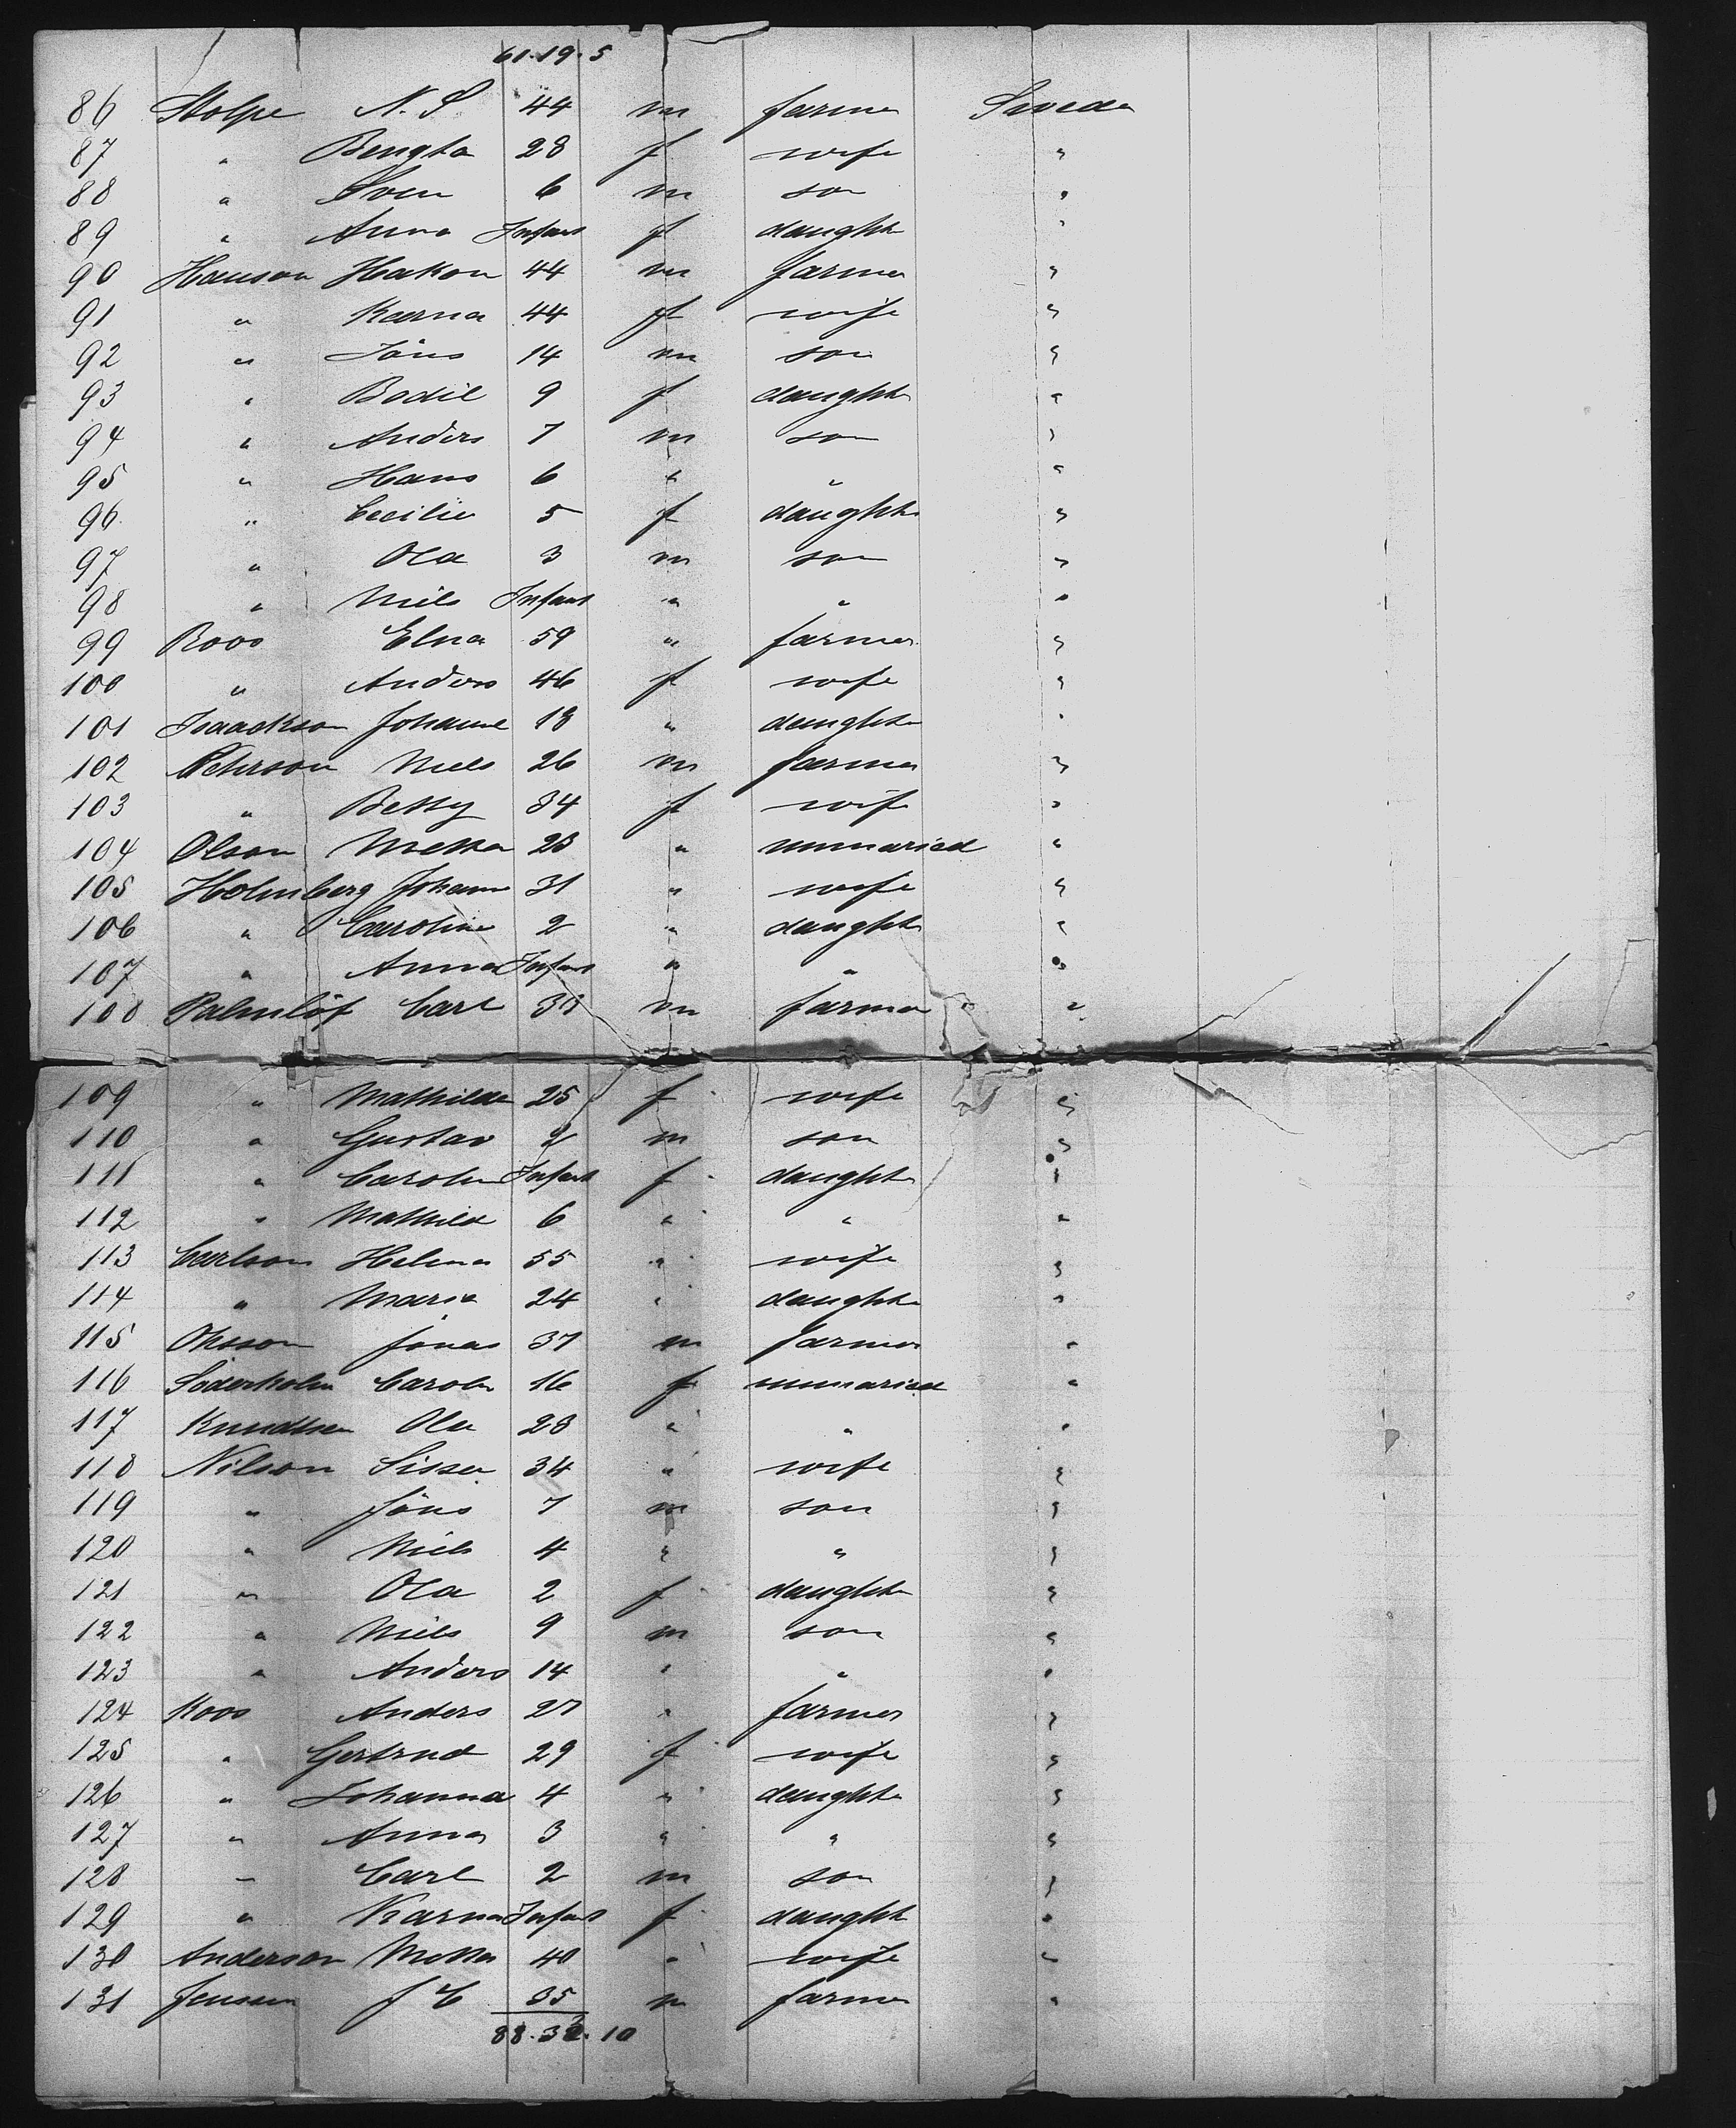 61.19.5
86 Stolpe N. S 44 m farmer Sweden
87 " Bengta 28 f wife "
88 " Sven 6 m son "
89 " Anna Infant f daught "
90 Hanson Hakon 44 m farmer "
91 " Karna 44 f wife "
92 " Jöns 14 m son "
93 " Bodil 9 f daught "
94 " Anders 7 m son "
95 " Hans 6 " " "
96 " Cecilie 5 f daught "
97 " Ola 3 m son "
98 " Niels Infant " " "
99 Roos Elna 59 " farmer "
100 " Anders 46 f wife "
101 Isaackson Johanne 18 " daught "
102 Pehrson Niels 26 m farmer "
103 " Betty 34 f wife "
104 Olson Metta 23 " unmaried "
105 Holmberg Johann 31 " wife "
106 " Caroline 2 " daught "
107 " Anna Infant " " "
108 Palmlöf Carl m farmer "
109 " Mathilda 25 f wife "
110 " Gustav 2 m son "
111 " Carolin Infant f daught "
112 " Mathild 6 " " "
113 Carlson Helena 55 " wife "
114 " Maria 24 " daught "
115 Ohsson Jonas 37 m farmer "
116 Söderholm Carolin 16 f unmaried "
117 Knudtsen Ola 28 " " "
118 Nilson Sissa 34 " wife "
119 " Jöns 7 m son "
120 " Niels 4 " " "
121 " Ola 2 f daught "
122 " Niels 9 m son "
123 " Anders 14 " " "
124 Roos Anders 27 " farmer "
125 " Gertrud 29 f wife "
126 " Johanna 4 " daught "
127 " Anna 3 " " "
128 " Carl 2 m son "
129 " Karna Infant f daught "
130 Anderson Metta 40 " wife "
131 Jensen J C 35 m farmer "
88.32.10